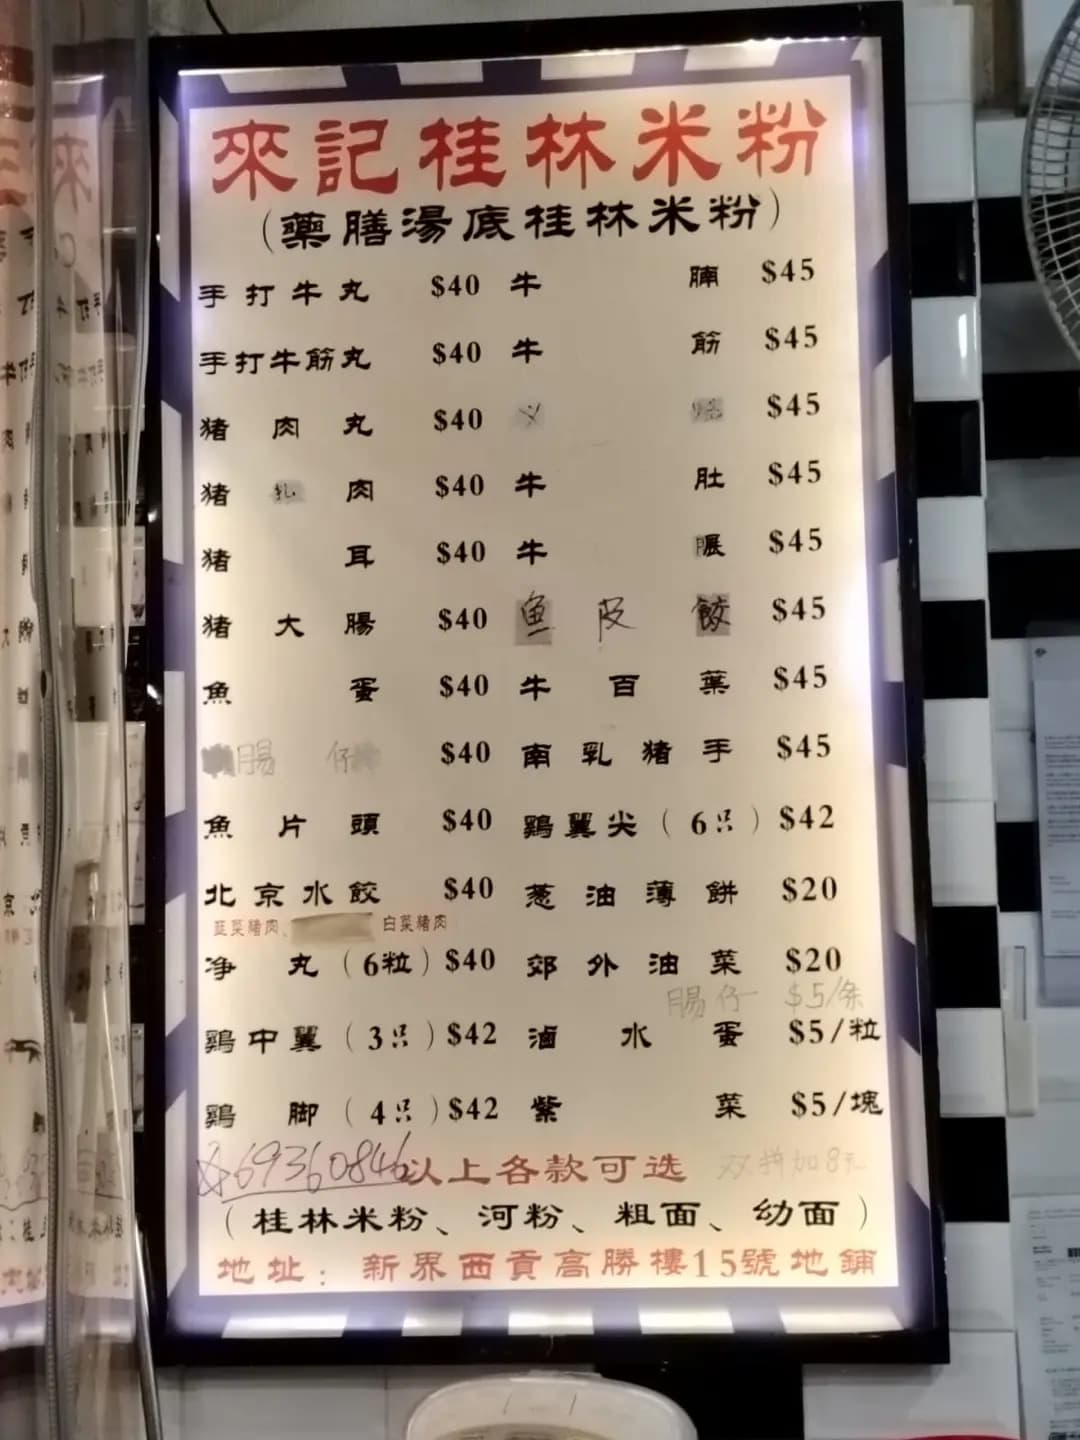 來記桂林米粉
(藥膳湯底桂林米粉)
手打牛丸 $40 牛腩 $45
手打牛筋丸 $40 牛筋 $45
猪肉丸 $40 $45
猪肉 $40 牛肚 $45
猪耳 $40 牛脹 $45
猪大腸 $40 鱼皮餃 $45
魚蛋 $40 牛百葉 $45
腸仔 $40 南乳猪手 $45
魚片頭 $40 鷄翼尖(6只) $42
北京水餃 $40 葱油薄餅 $20
韮菜豬肉、 白菜豬肉
净丸(6粒) $40 郊外油菜 $20
腸仔 $5/条
鷄中翼(3只) $42 滷水蛋 $5/粒
鷄脚(4只) $42 紫菜 $5/塊
69360846 以上各款可选 双拼加8元
(桂林米粉、河粉、粗面、幼面)
地址：新界西貢高勝樓15號地鋪